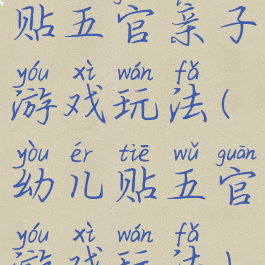 贴五官亲子
yóu xì wán fǎ
游戏玩法(
yòu ér tiē wǔ guān
幼儿贴五官
yóu xì wán fǎ
游戏玩法)